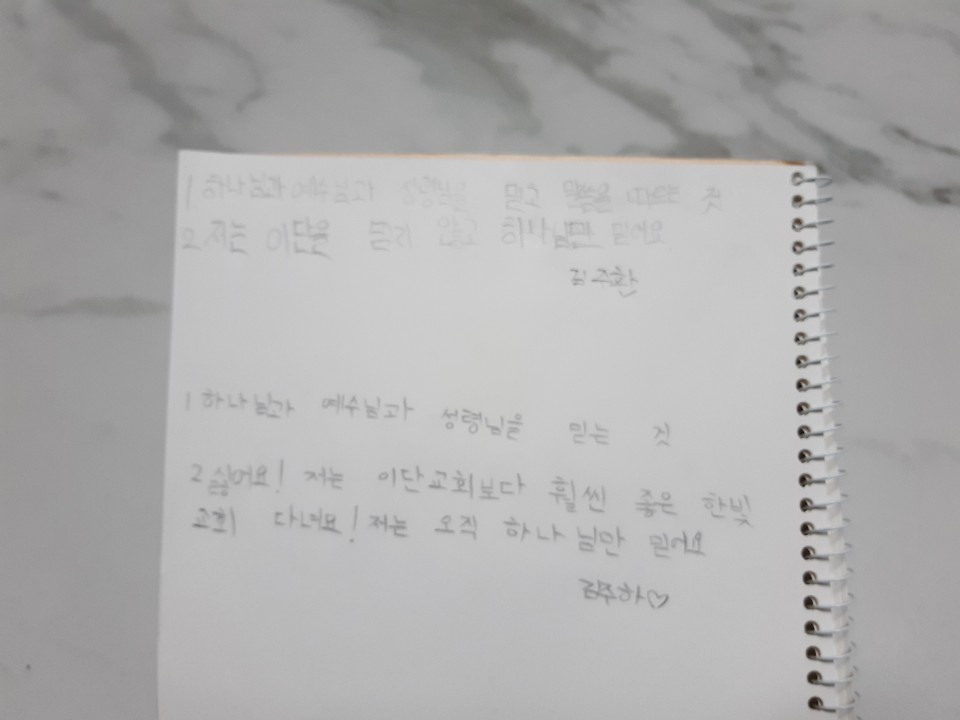 1 하나님과 예수님과 성령님을 믿고 말씀을 따르는 것
2 저는 이단을 믿지 않고 하나님만 믿어요
김주환
1 하나님과 예수님과 성령님을 믿는 것
2 싫어요! 저는 이단교회보다 훨씬 좋은 한빛
교회 다녀요! 저는 오직 하나님만 믿어요
김주하♡